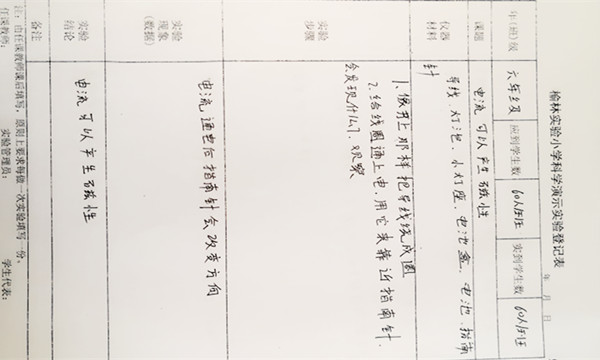 榆林实验小学科学演示实验登记表
年 月 日
年(班)级 六年级 应到学生数 60人/班 实到学生数 60人/班
课题 电流可以产生磁性
仪器
材料
导线、灯泡、小灯座、电池盒、电池、指南
针
实验
步骤
1、像书上那样把导线绕成圈
2、给线圈通上电,用它来靠近指南针.
会发现什么?观察
实验
现象
(数据)
电流通电后指南针会改变方向
实验
结论
电流可以产生磁性
备注
注:由任课教师课后填写,原则上要求每做一次实验填写一份。
任课教师: 实验管理员: 学生代表: